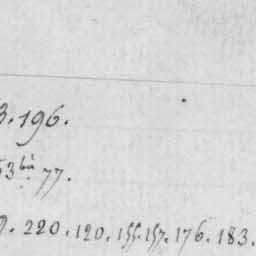 3.196.
53bis 77.
9. 220. 120. 155. 157. 176. 183.